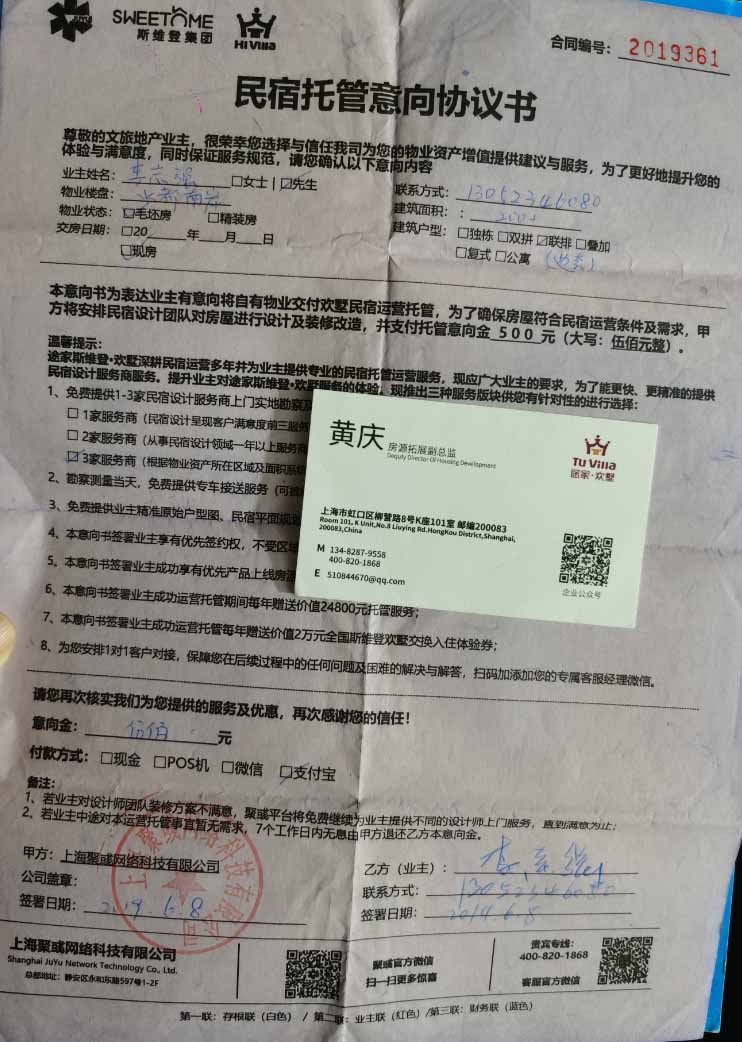 SWEETOME
斯维登集团
Hi Villa
合同编号: 2019361
民宿托管意向协议书
尊敬的文旅地产业主，很荣幸您选择与信任我司为您的物业资产增值提供建议与服务，为了更好地提升您的
体验与满意度，同时保证服务规范，请您确认以下意向内容
业主姓名: □女士 | ☑先生
联系方式: 13052346080
物业楼盘:
建筑面积: : 200
物业状态: ☑毛坯房 □精装房
建筑户型: □独栋 □双拼 ☑联排 □叠加
交房日期: □20 年 月 日
□复式 □公寓
☑现房
本意向书为表达业主有意向将自有物业交付欢墅民宿运营托管，为了确保房屋符合民宿运营条件及需求，甲
方将安排民宿设计团队对房屋进行设计及装修改造，并支付托管意向金 500 元（大写：伍佰元整）。
温馨提示:
途家斯维登•欢墅深耕民宿运营多年并为业主提供专业的民宿托管运营服务，现应广大业主的要求，为了能更快、更精准的提供
民宿设计服务商服务。提升业主对途家斯维登•欢墅服务的体验，现推出三种服务版块供您有针对性的进行选择:
1、免费提供1-3家民宿设计服务商上门实地勘察及
□ 1家服务商（民宿设计呈现客户满意度前三服务
□ 2家服务商（从事民宿设计领域一年以上服务商
☑ 3家服务商（根据物业资产所在区域及面积系统
2、勘察测量当天，免费提供专车接送服务（可
3、免费提供业主精准原始户型图、民宿平面规
4、本意向书签署业主享有优先签约权，不受区
5、本意向书签署业主成功享有优先产品上线房
6、本意向书签署业主成功运营托管期间每年赠送价值24800元托管服务;
7、本意向书签署业主成功运营托管每年赠送价值2万元全国斯维登欢墅交换入住体验券;
8、为您安排1对1客户对接，保障您在后续过程中的任何问题及困难的解决与解答，扫码加添加您的专属客服经理微信。
黄庆 房源拓展副总监
Deputy Director Of Housing Development
Tu Villa
途家·欢墅
上海市虹口区柳营路8号K座101室 邮编200083
Room 101, K Unit,No.8 Liuying Rd.HongKou District,Shanghai,
200083,China
M 134-8287-9558
400-820-1868
E 510844670@qq.com
企业公众号
请您再次核实我们为您提供的服务及优惠，再次感谢您的信任！
意向金: 伍佰 元
付款方式: □现金 □POS机 □微信 ☑支付宝
备注:
1、若业主对设计师团队装修方案不满意，聚或平台将免费继续为业主提供不同的设计师上门服务，直到满意为止;
2、若业主中途对本运营托管事宜暂无需求，7个工作日内无息由甲方退还乙方本意向金。
甲方: 上海聚或网络科技有限公司
乙方（业主）:
公司盖章:
联系方式: 13052346080
签署日期: 2019.6.8
签署日期: 2019.6.8
上海聚或网络科技有限公司
Shanghai JuYu Network Technology Co., Ltd.
总部地址: 静安区永和东路597号1-2F
聚或官方微信
扫一扫更多惊喜
贵宾专线:
400-820-1868
客服官方微信
第一联: 存根联（白色） / 第二联: 业主联（红色）/第三联: 财务联（蓝色）